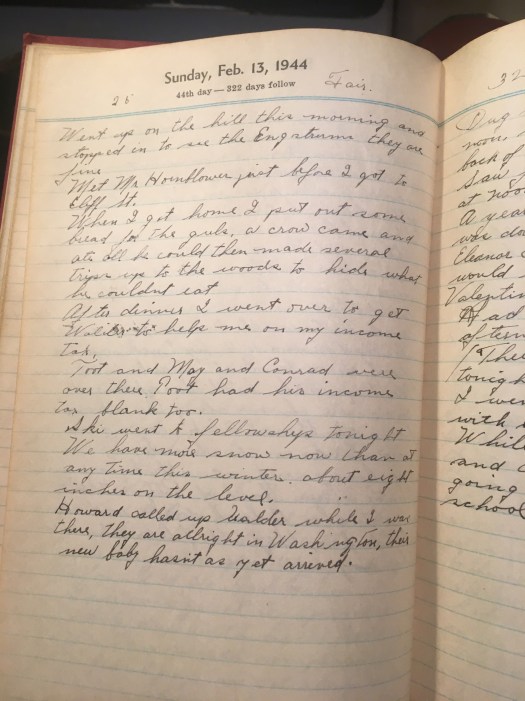 Sunday, Feb. 13, 1944
44th day—322 days follow
28
Fair.
Went up on the hill this morning and
stopped in to see the Engstrums they are
fine
Met Mr Hornblower just before I got to
Cliff St.
When I get home I put out some
bread for the guls, a crow came and
ate all he could then made several
trips up to the woods to hide what
he couldnt eat
After dinner I went over to get
to help me on my income
tax.
Toot and May and Conrad were
over there Toot had his income
tax blank too.
went to fellowshys tonight
We have more snow now than at
any time this winter. about eight
inches on the level.
Howard called up while I was
there, they are allright in Washington, their
new baby hasnt as yet arrived.
32
Dug
mon.
back of
Saw
at noo
A year
was do
Eleanor
would
Valentin
Had
aftern
Thed
tonigh
I wen
with
Whil
and
going
school